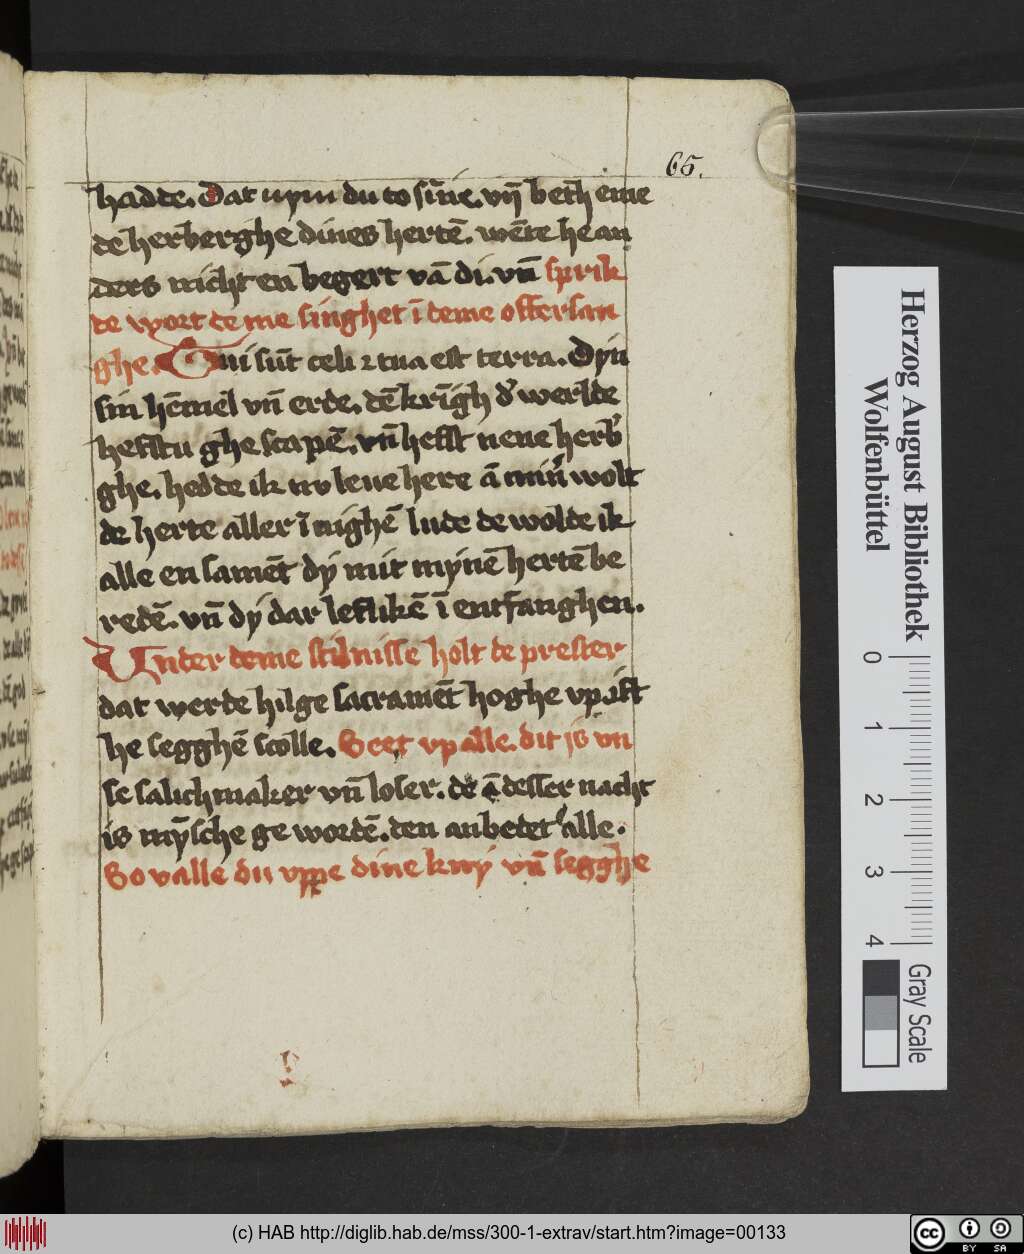 65.
hadde. Dat nym du to sīne. vn̄ beth eme
de herberghe dines hertē. wēte he an
ders nicht en begert vā di. vn̄ sprik
de wort de me singhet ī deme offersan
ghe. Tui sūt celi ⁊ tua est terra. Dyn
sin hēmel vn̄ erde. dē krīgh dʼ werlde
hefstu ghe scapē. vn̄ hefst nene herbʼ
ghe. hedde ik nv leue here ā min̄ wolt
de herte aller īnighē lude de wolde ik
alle en samēt dy mit mynē hertē be
redē. vn̄ dy dar lefliкē ī entfanghen.
Vnder deme stilnisse holt de prester
dat werde hilge sacramēt hoghe vp. ist
he segghē scolle. Seet vp alle. dit is vn
se salichmaker vn̄ loser. de ā desser nacht
is mȳsche ge wordē. den anbetet alle.
So valle du vppe dine kny vn̄ segghe
Herzog August Bibliothek
Wolfenbüttel
0 1 2 3 4
Gray Scale
(c) HAB http://diglib.hab.de/mss/300-1-extrav/start.htm?image=00133
cc BY SA